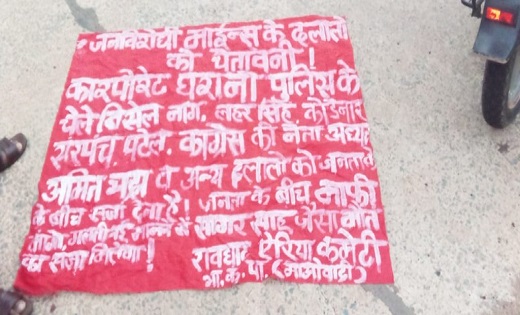 जनविरोधी माईन्स के दलालो
को चेतावनी !
कारपोरेट घराना पुलिस के
चेले बिसेल नाग, लहर सिंह, कोडेनार
सरपंच पटेल, कांग्रेस की नेता अध्यक्ष
अमित व अन्य दलालो को जनताने
के बीच सजा देना है ! जनता के बीच माफी
मांगो, गलती मे सागर साहू जैसा मौत
का सजा मिलेगा ! रावघाट ऐरिया कमेटी
भा. क. पा. (माओवादी)